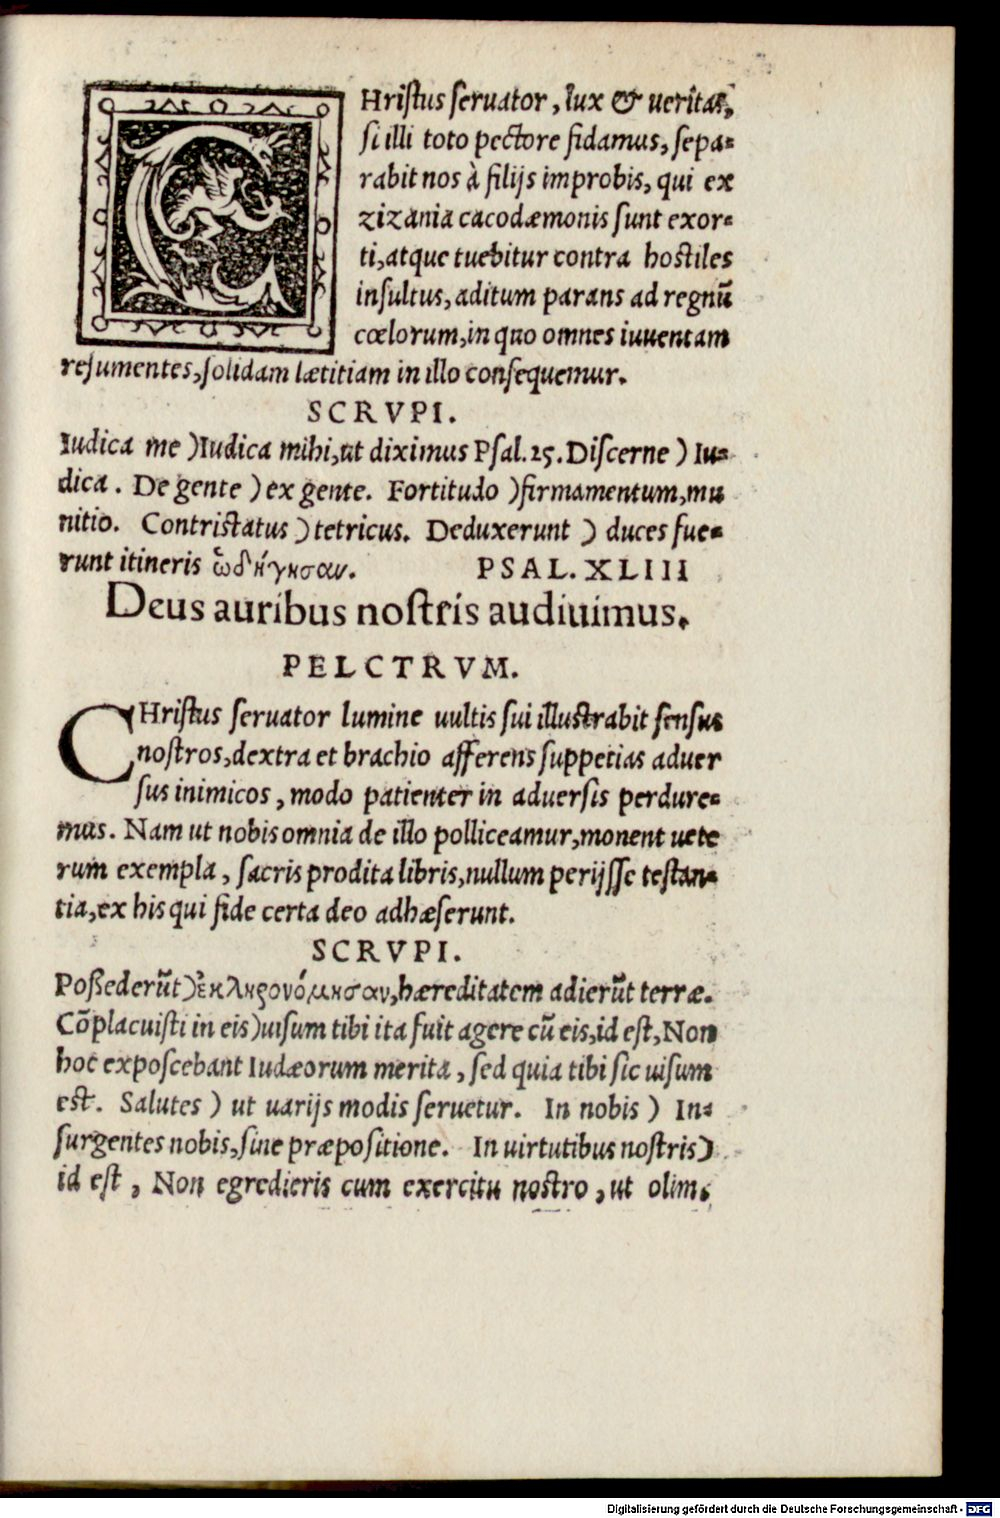 CHristus seruator, lux & ueritas,
si illi toto pectore fidamus, sepa-
rabit nos à filijs improbis, qui ex
zizania cacodæmonis sunt exor-
ti, atque tuebitur contra hostiles
insultus, aditum parans ad regnũ
cœlorum, in quo omnes iuuentam
resumentes, solidam lætitiam in illo consequemur.
SCRVPI.
Iudica me) Iudica mihi, ut diximus Psal. 25. Discerne) Iu-
dica. De gente) ex gente. Fortitudo) firmamentum, mu
nitio. Contristatus) tetricus. Deduxerunt) duces fue-
runt itineris ὡδήγησαν. PSAL. XLIII
Deus auribus nostris audiuimus.
PELCTRVM.
CHristus seruator lumine uultis sui illustrabit sensus
nostros, dextra et brachio afferens suppetias aduer
sus inimicos, modo patienter in aduersis perdure-
mus. Nam ut nobis omnia de illo polliceamur, monent uete
rum exempla, sacris prodita libris, nullum perijsse testan-
tia, ex his qui fide certa deo adhæserunt.
SCRVPI.
Poßederũt) ἐκληρονόμησαν, hæreditatem adierũt terræ.
Cõplacuisti in eis) uisum tibi ita fuit agere cũ eis, id est, Non
hoc exposcebant Iudæorum merita, sed quia tibi sic uisum
est. Salutes) ut uarijs modis seruetur. In nobis) In-
surgentes nobis, sine præpositione. In uirtutibus nostris)
id est, Non egredieris cum exercitu nostro, ut olim,
Digitalisierung gefördert durch die Deutsche Forschungsgemeinschaft - DFG